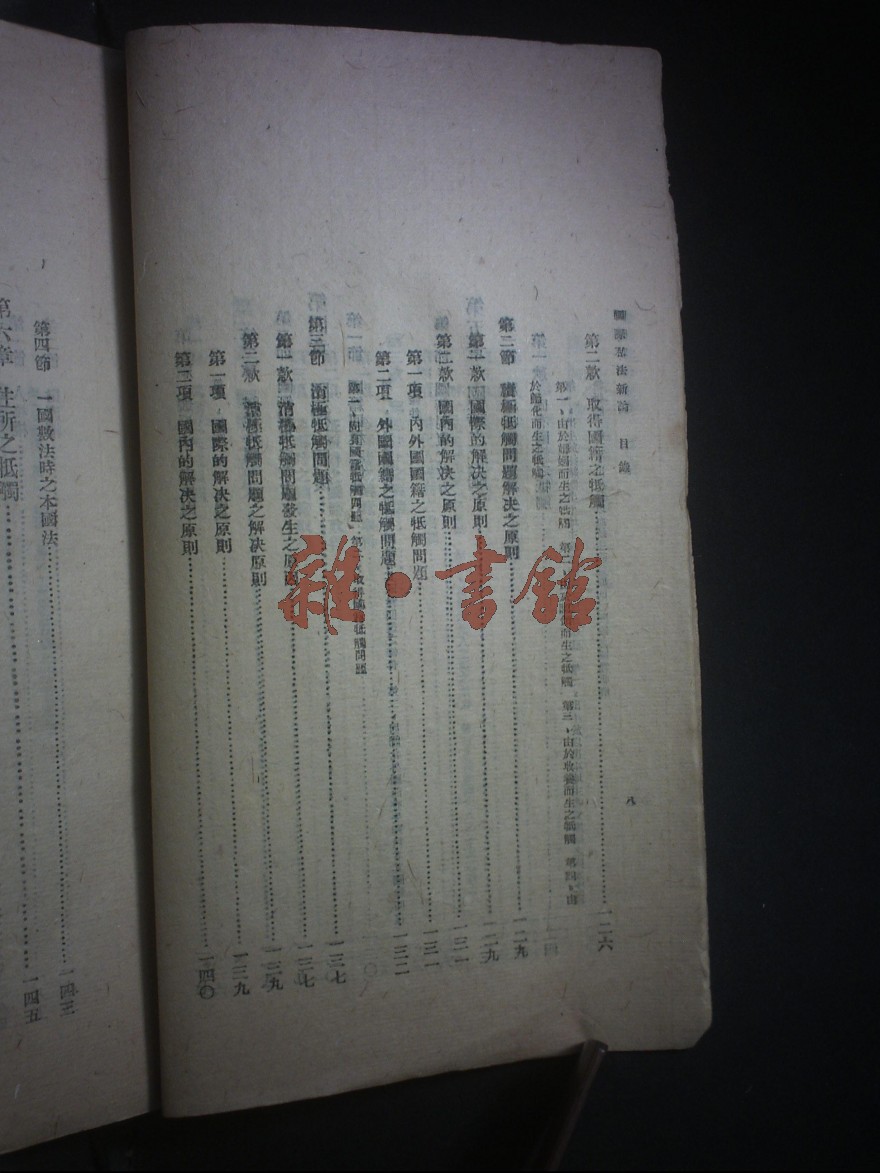 國際私法新論 目錄 八
第二款 取得國籍之牴觸 一二六
第一、由於婚姻而生之牴觸 第二、由 而生之牴觸 第三、由於收養而生之牴觸 第四、由
於歸化而生之牴觸
第二節 積極牴觸問題解决之原則 一二九
第一款 國際的解决之原則 一二九
第二款 國內的解决之原則 一三一
第一項 內外國國籍之牴觸問題 一三一
第二項 外國國籍之牴觸問題 一三二
第一、 國籍牴觸問題 第二、 牴觸問題
第三節 消極牴觸問題 一三七
第一款 消極牴觸問題發生之原因 一三七
第二款 消極牴觸問題之解决原則 一三九
第一項 國際的解决之原則 一三九
第二項 國內的解决之原則 一四〇
第四節 一國數法時之本國法 一四三
第六章 住所之牴觸 一四五
雜·書館